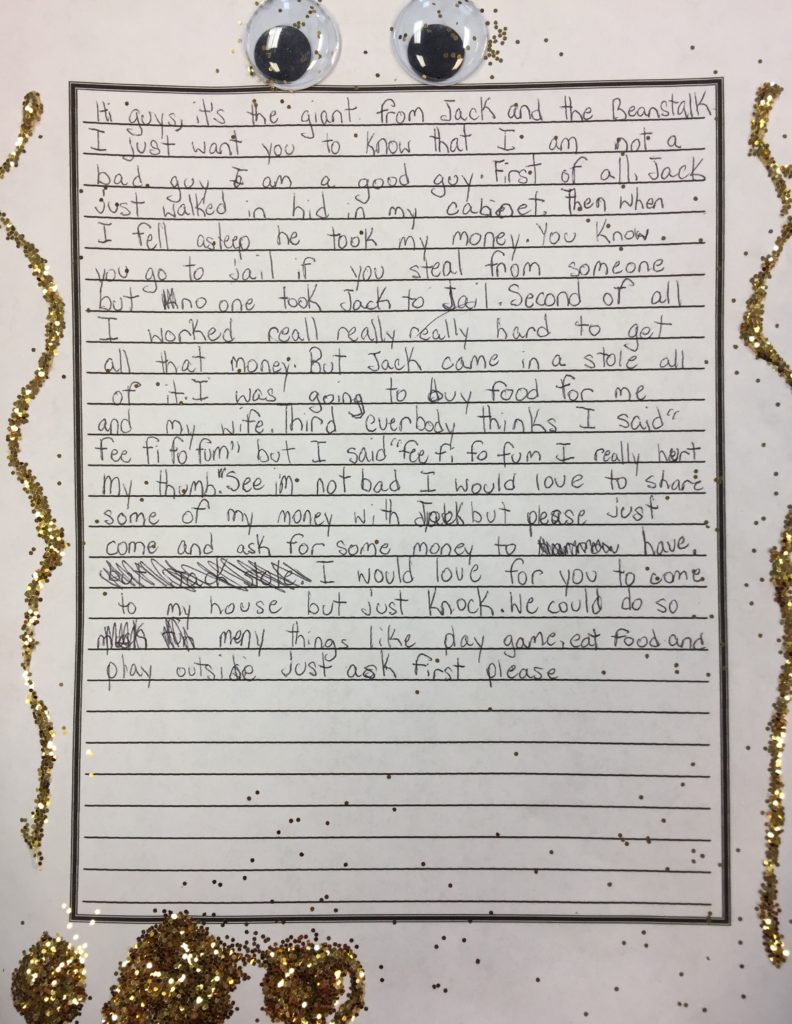 Hi guys, it's the giant from Jack and the Beanstalk
I just want you to know that I am not a
bad guy I am a good guy. First of all, Jack
just walked in hid in my cabinet. Then when
I fell asleep he took my money. You know
you go to jail if you steal from someone
but no one took Jack to Jail. Second of all
I worked reall really really hard to get
all that money. But Jack came in a stole all
of it. I was going to buy food for me
and my wife. Third everbody thinks I said "
fee fi fo fum" but I said "fee fi fo fum I really hert
my thumb." See im not bad I would love to share
some of my money with Jack but please just
come and ask for some money to have.
I would love for you to come
to my house but just knock. We could do so
meny things like day game, eat food and
play outside just ask first please